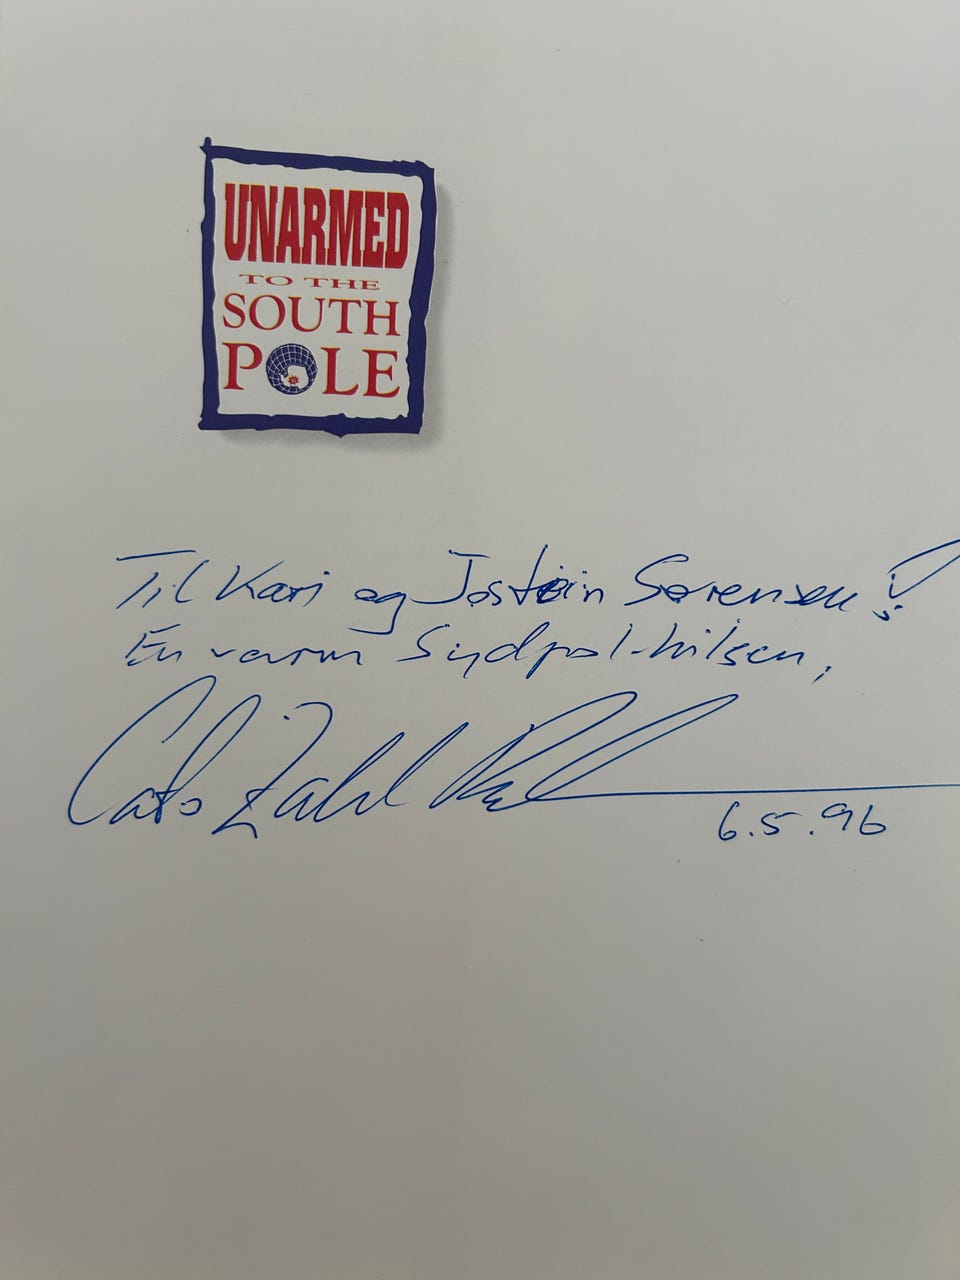 UNARMED
TO THE
SOUTH
POLE
Til Kari og Jostein Sørensen!
En varm Sydpol-hilsen,
Cato Zahl
6.5.96